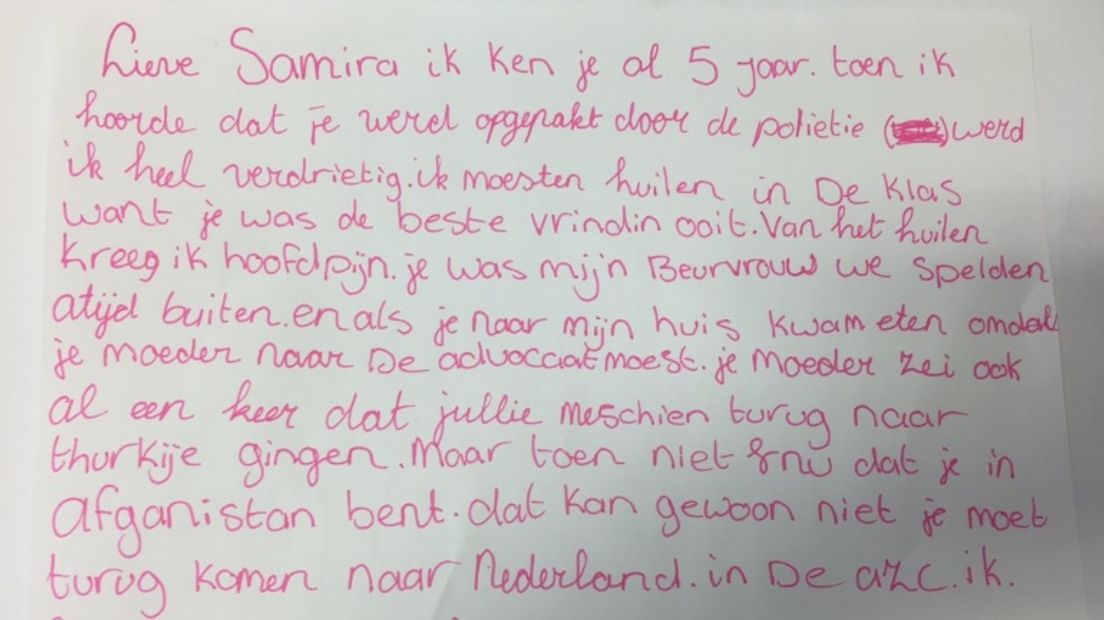 Lieve Samira ik ken je al 5 jaar. toen ik
hoorde dat je werd opgepakt door de polietie () werd
ik heel verdrietig. ik moesten huilen in De Klas
want je was de beste vrindin ooit. Van het huilen
kreeg ik hoofdpijn. je was mijn Beurvrouw we spelden
atijd buiten. en als je naar mijn huis kwam eten omdat
je moeder naar De advoccaat moest. je moeder zei ook
al een keer dat jullie meschien turug naar
thurkije gingen. Maar toen niet & nu dat je in
afganistan bent. dat kan gewoon niet je moet
turug komen naar Nederland. in De azc. ik.